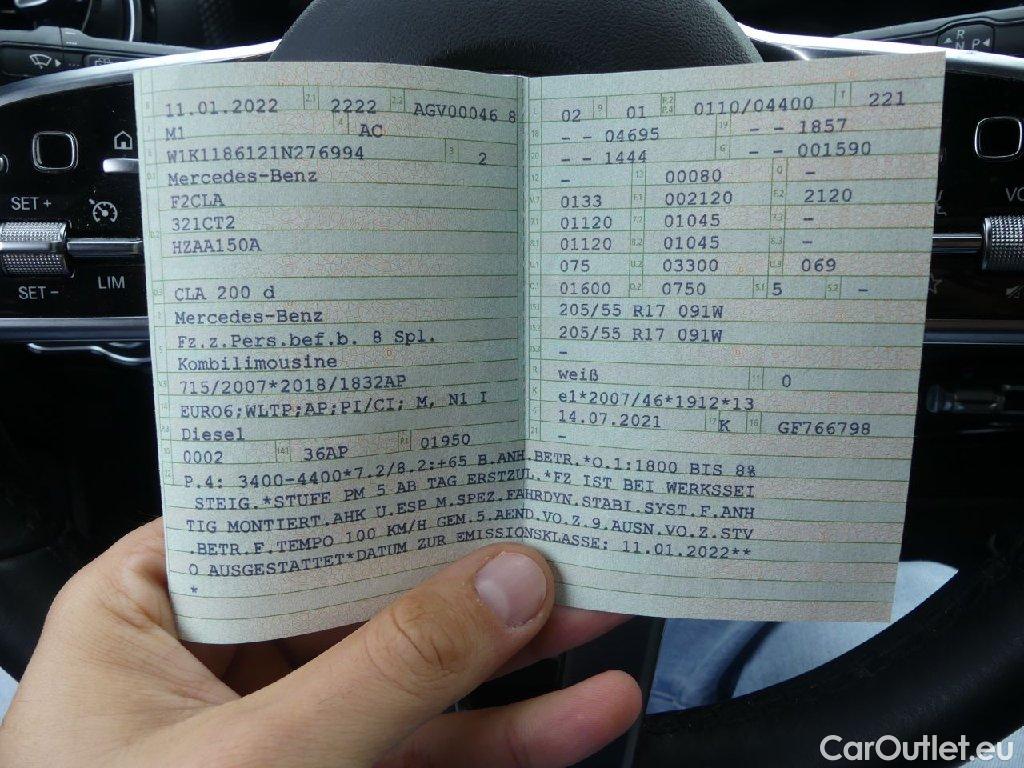 SET +
SET −
LIM
B 11.01.2022 2.1 2222 2.2 AGV00046 8
J M1 4 AC
E W1K1186121N276994 3 2
D.1 Mercedes-Benz
F2CLA
D.2 321CT2
HZAA150A
D.3 CLA 200 d
2 Mercedes-Benz
5 Fz.z.Pers.bef.b. 8 Spl.
Kombilimousine
V.9 715/2007*2018/1832AP
14 EURO6;WLTP;AP;PI/CI; M, N1 I
P.3 Diesel
10 0002 14.1 36AP P.1 01950
L 02 9 01 P.2 P.4 0110/04400 T 221
18 - - 04695 19 - - 1857
20 - - 1444 G - - 001590
12 - 13 00080 Q -
V.7 0133 F.1 002120 F.2 2120
7.1 01120 7.2 01045 7.3 -
8.1 01120 8.2 01045 8.3 -
U.1 075 U.2 03300 U.3 069
O.1 01600 O.2 0750 S.1 5 S.2 -
15.1 205/55 R17 091W
15.2 205/55 R17 091W
15.3 -
R weiß 11 0
K e1*2007/46*1912*13
6 14.07.2021 17 K 16 GF766798
21 -
22 P.4: 3400-4400*7.2/8.2:+65 B.ANH.BETR.*O.1:1800 BIS 8%
STEIG.*STUFE PM 5 AB TAG ERSTZUL.*FZ IST BEI WERKSSEI
TIG MONTIERT.AHK U.ESP M.SPEZ.FAHRDYN.STABI.SYST.F.ANH
.BETR.F.TEMPO 100 KM/H GEM.5.AEND.VO.Z.9.AUSN.VO.Z.STV
O AUSGESTATTET*DATUM ZUR EMISSIONSKLASSE: 11.01.2022**
*
R
N P
VO
CarOutlet.eu